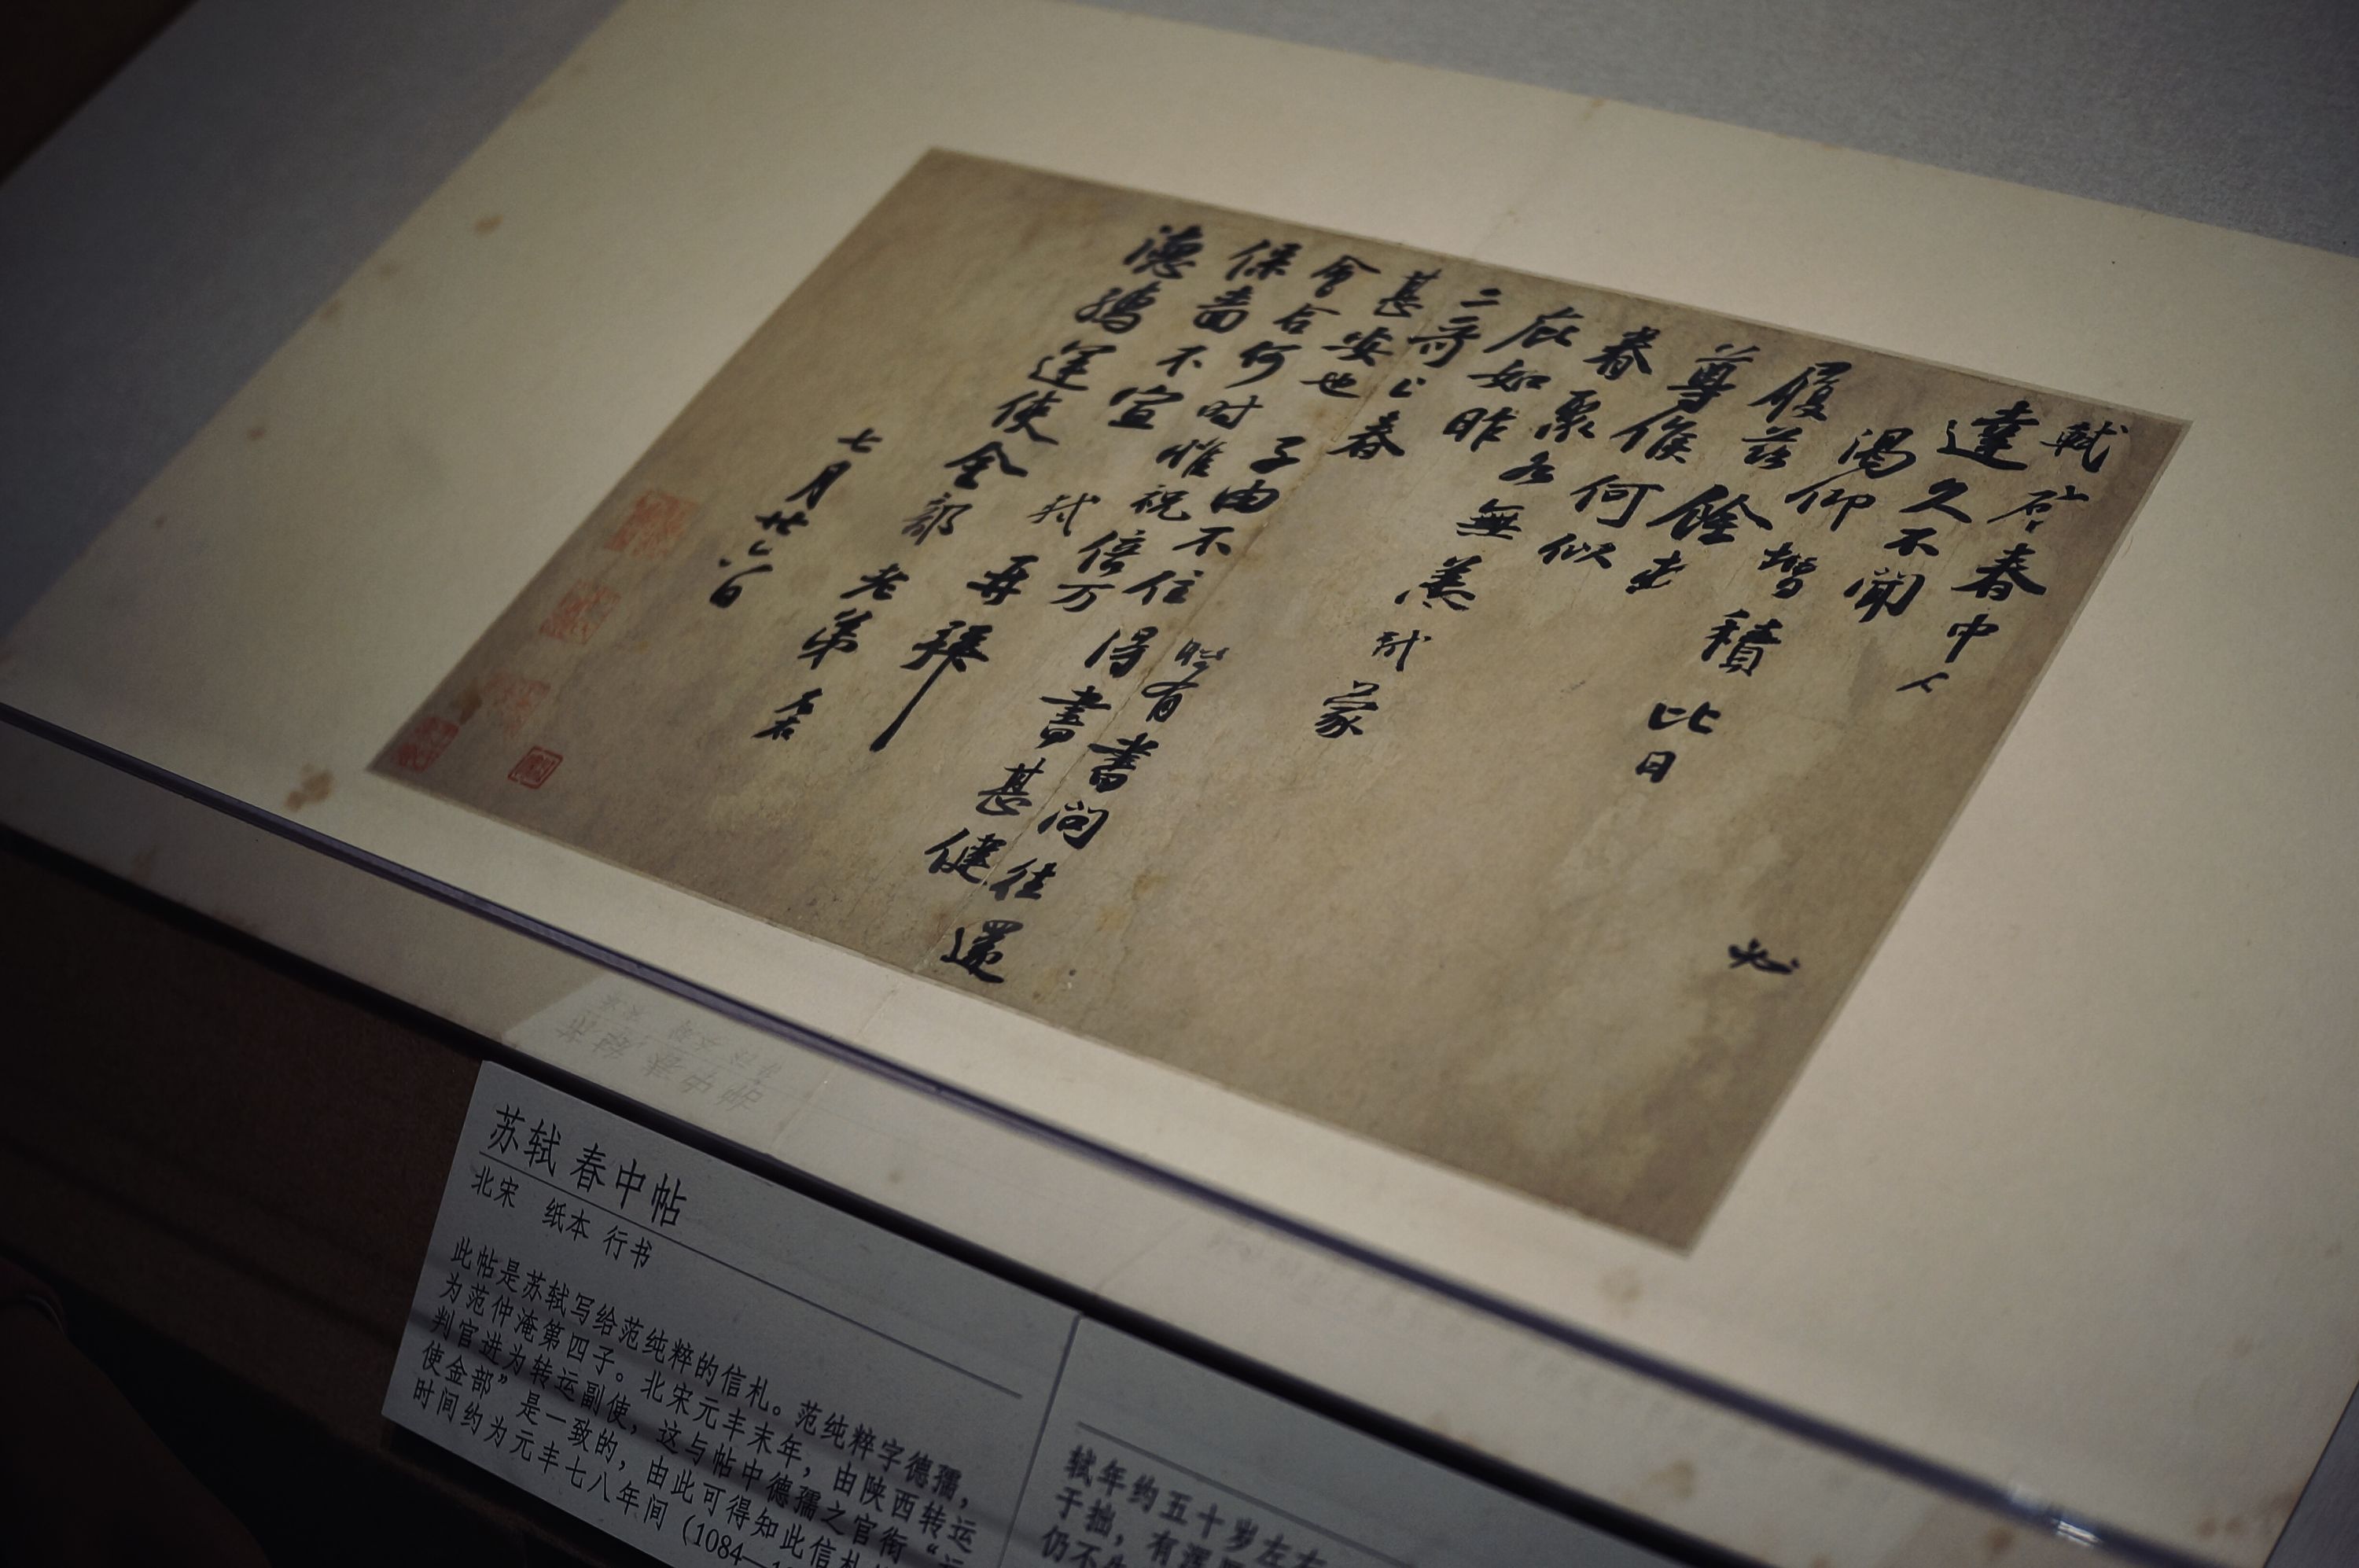 軾啓春中人必
達久不聞
渴仰增積比日
履茲餘
尊候何似
眷聚各無恙軾蒙
庇如昨
二哥上春時有書問往還
甚安也子由不住得書甚健
會合何時惟祝倍万
保嗇不宣軾再拜
德孺運使金部老弟
七月廿六日
苏轼 春中帖
北宋 纸本 行书
此帖是苏轼写给范纯粹的信札。范纯粹字德孺，
为范仲淹第四子。北宋元丰末年，由陕西转运
判官进为转运副使，这与帖中德孺之官衔“运
使金部”是一致的，由此可得知此信札
时间约为元丰七八年间（1084—1
轼年约五十岁左右
于拙，有
仍不